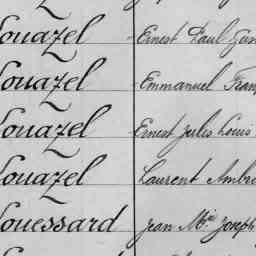 ouazel Ernest Paul
ouazel Emmanuel
ouazel Ernest Jules Louis
ouazel Laurent
ouessard Jean M.ie Joseph